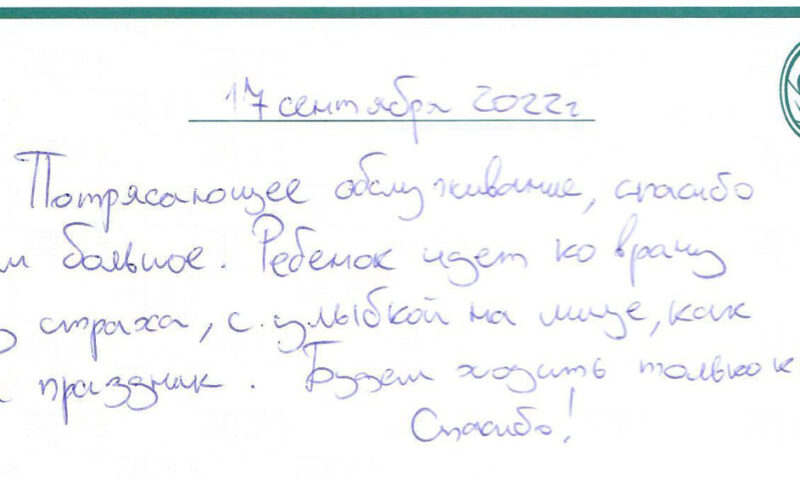 17 сентября 2022г
Потрясающее обслуживание, спасибо
м большое. Ребенок идет ко врачу
з страха, с улыбкой на лице, как
праздник. Будем ходить только к
Спасибо!